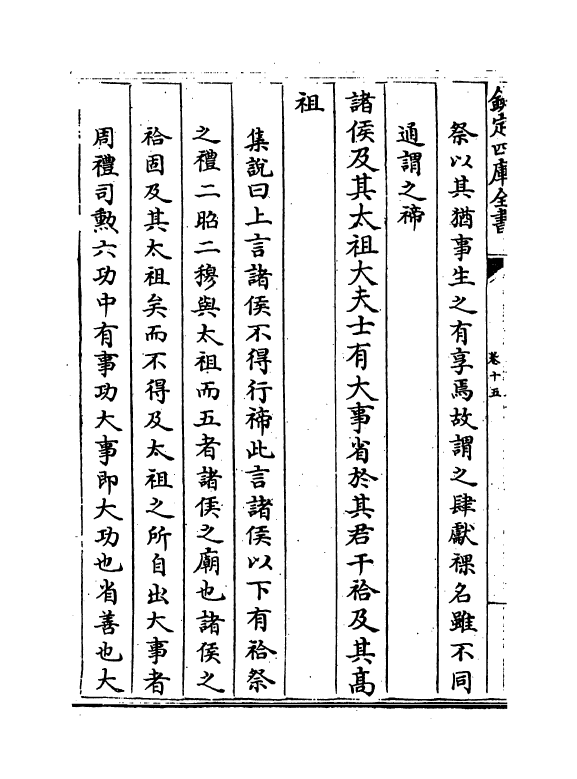 欽定四庫全書
卷十五
祭以其猶事生之有享焉故謂之肆獻祼名雖不同
通謂之禘
諸侯及其太祖大夫士有大事省於其君干祫及其髙
祖
集說曰上言諸侯不得行禘此言諸侯以下有祫祭
之禮二昭二穆與太祖而五者諸侯之廟也諸侯之
祫固及其太祖矣而不得及太祖之所自出大事者
周禮司勲六功中有事功大事即大功也省善也大